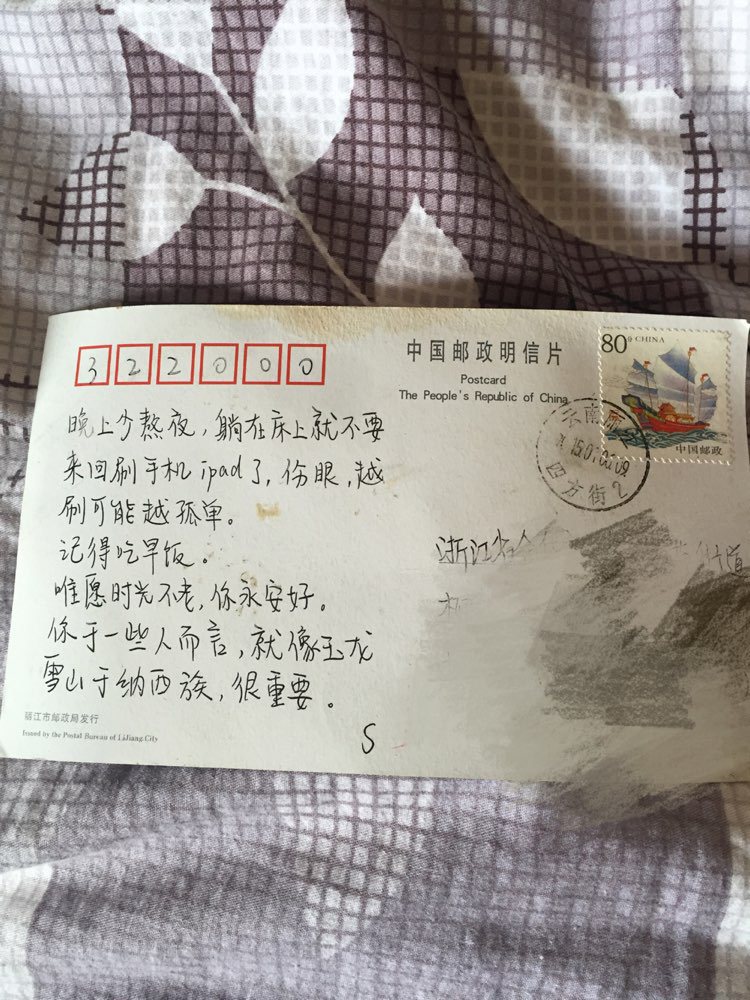 322000
中国邮政明信片
Postcard
The People's Republic of China
80分 CHINA
中国邮政
云南
四方街2
晚上少熬夜，躺在床上就不要
来回刷手机ipad了，伤眼，越
刷可能越孤单。
记得吃早饭。
唯愿时光不老，你永安好。
你于一些人而言，就像玉龙
雪山于纳西族，很重要。
S
浙江省
街道
丽江市邮政局发行
Issued by the Postal Bureau of LiJiang.City